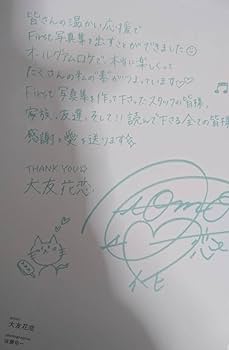 皆さんの温かい応援で
First写真集を出すことができました
オールグアムロケで、本当に楽しくって
たくさんの私の"素"がつまっています♡
First写真集を作って下さったスタッフの皆様、
家族、友達、そして!!読んで下さる全ての皆様
感謝と愛を送ります
THANK YOU☆
大友花恋.
大友花恋